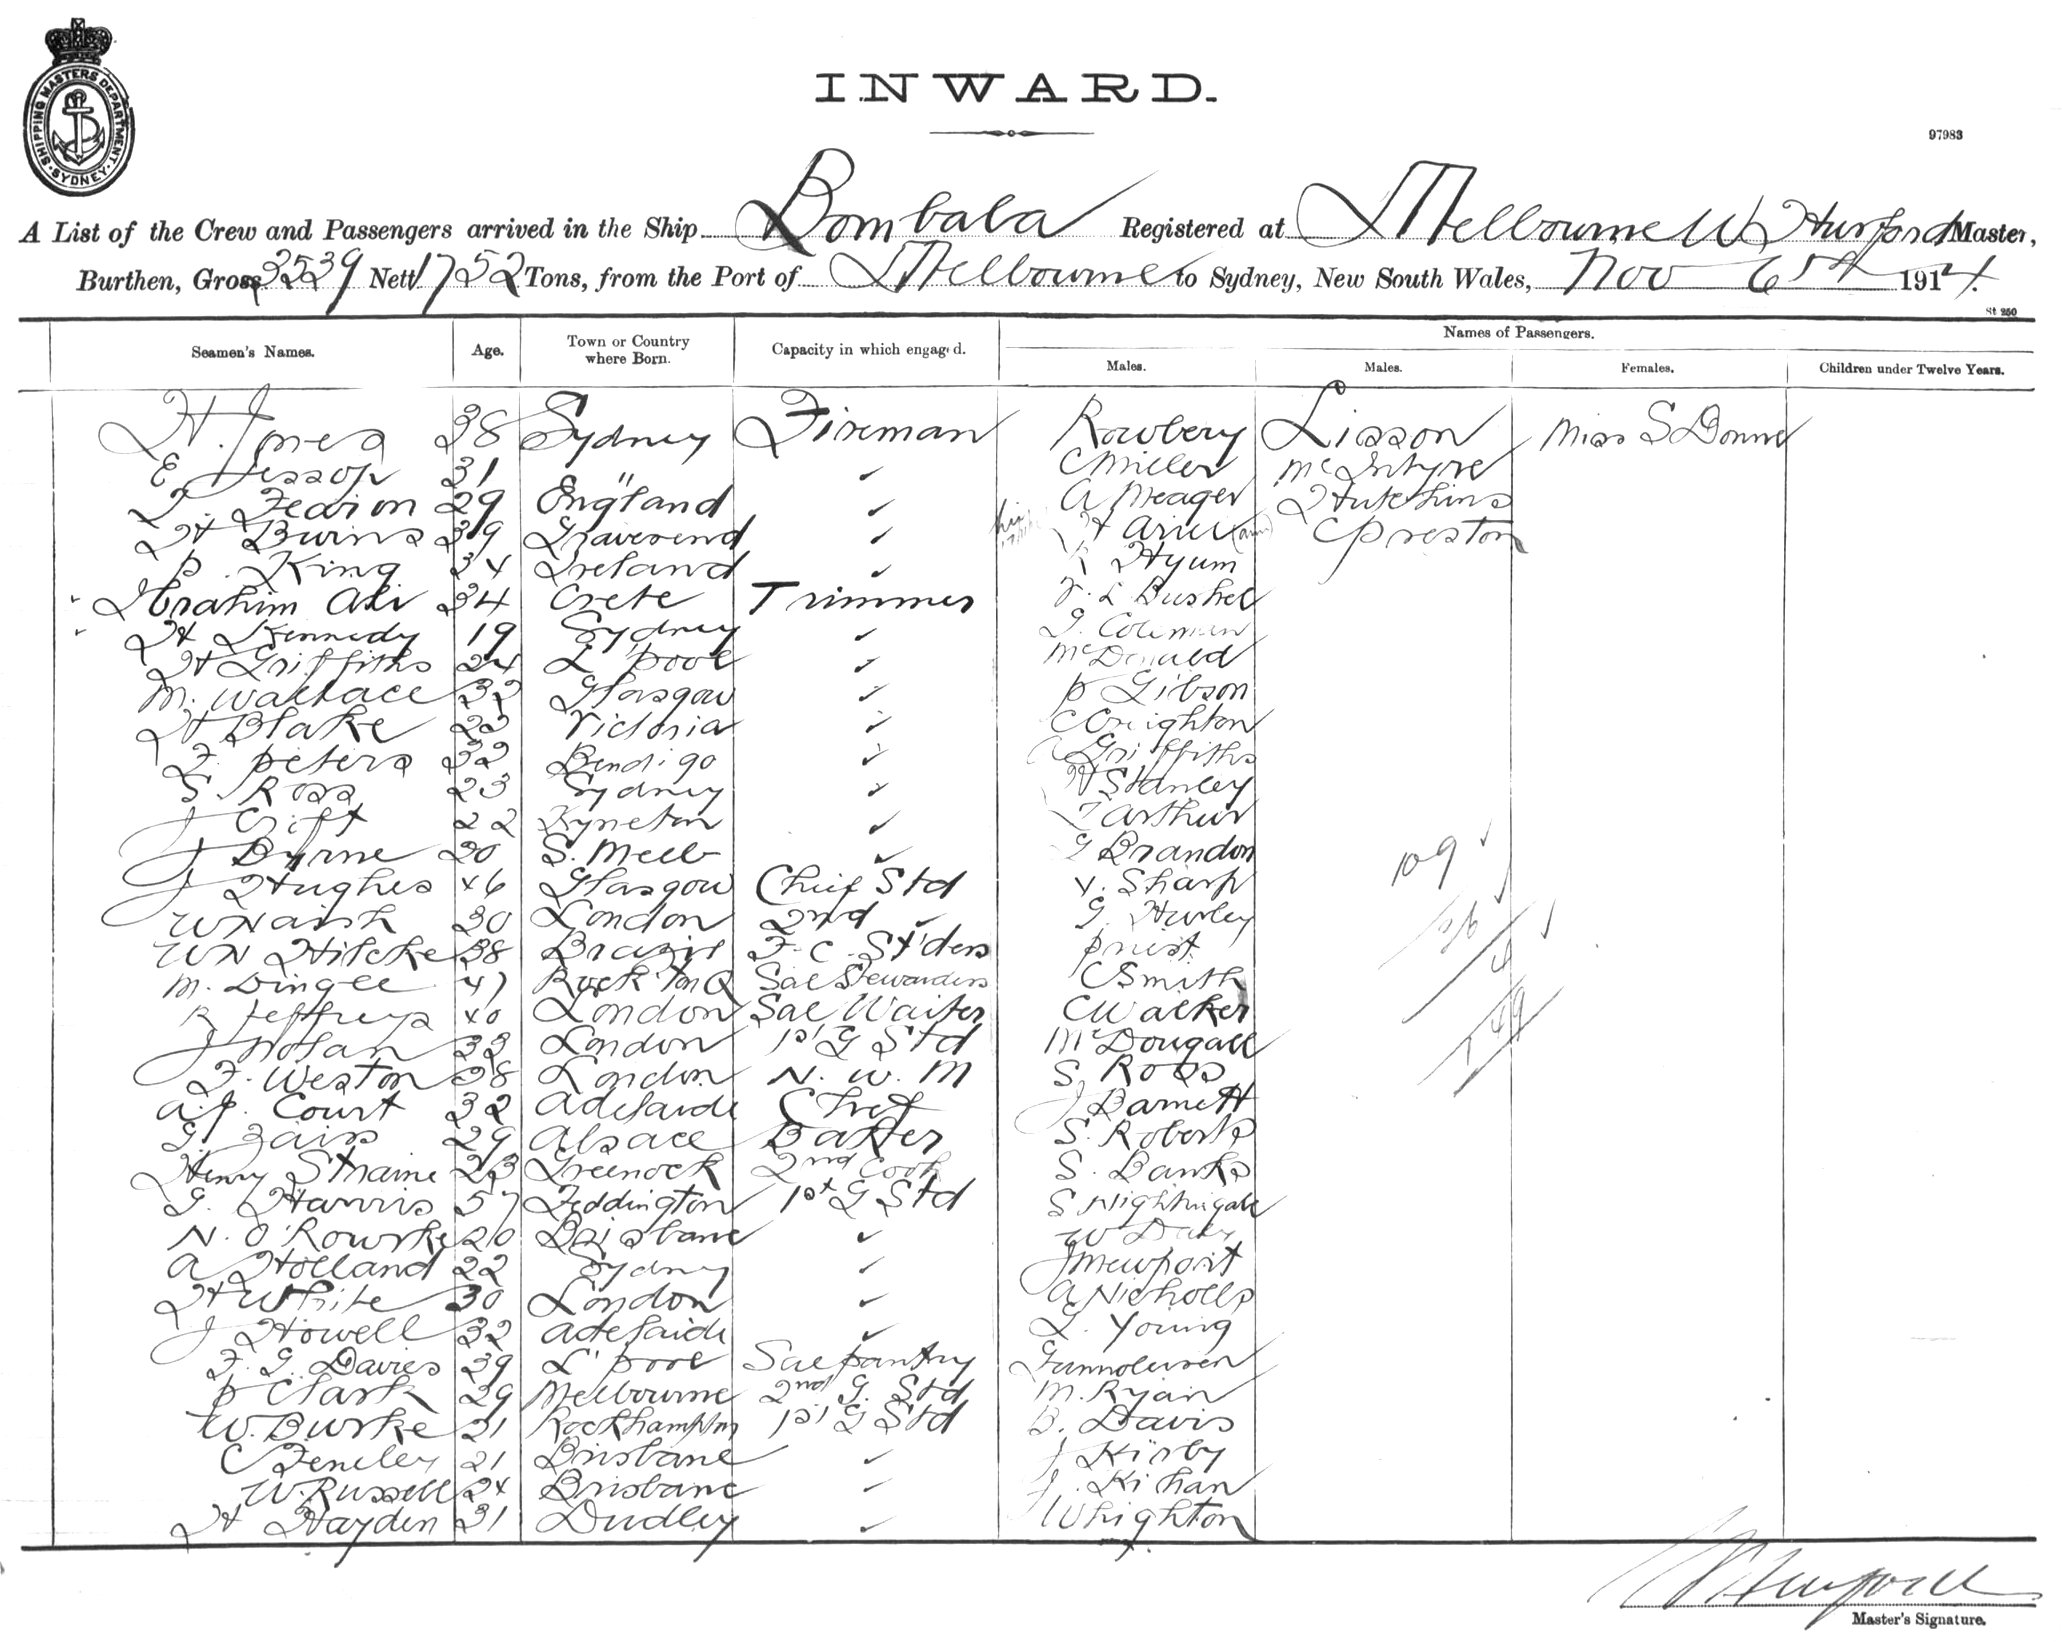 SHIPPING MASTERS DEPARTMENT
SYDNEY
INWARD.
97983
A List of the Crew and Passengers arrived in the Ship Bombala Registered at Melbourne W Hurford Master,
Burthen, Gross 3539 Nett 1752 Tons, from the Port of Melbourne to Sydney, New South Wales, Nov 6th 1914.
St 250
Seamen's Names. Age. Town or Country where Born. Capacity in which engaged. Names of Passengers.
Males. Males. Females. Children under Twelve Years.
H. Jones 38 Sydney Fireman Rowbery Lisson Miss S Donne
E Jessop 31 " ✓ C Miller McIntyre
T. Fearon 29 England ✓ A Meager Hutchins
H Burns 39 Gravesend ✓ H C Preston
P. King 34 Ireland ✓ R Hyum
Ibrahim Ali 34 Crete Trimmer L Bushel
H Kennedy 19 Sydney ✓ G. Coleman
H Griffiths 24 L'pool ✓ McDonald
M. Wallace 32 Glasgow ✓ P Gibson
H Blake 22 Victoria ✓ C Creighton
F. Peters 32 Bendigo ✓ Griffiths
S. Ross 23 Sydney ✓ H Stanley
J Crift 22 Kyneton ✓ T Arthur
J Byrne 20 S. Melb ✓ G Brandon
J Hughes 46 Glasgow Chief Std V. Sharp
W Naish 30 London 2nd ✓ G. Hurley
WN Hilcke 38 Brazil F.C. St'dess Priest
M. Dingle 47 Rock'ton Q Sal Stewardess C Smith
R Jeffreys 40 London Sal Waiter C Walker
J Nolan 33 London 1st G Std McDougall
F. Weston 38 London N. W. M S. Ross
A.J. Court 32 Adelaide Chef J Barnett
G. Zaiss 29 Alsace Baker S. Roberts
Henry Straine 23 Greenock 2nd Cook S. Banks
G. Harris 57 Teddington 1st G Std S Nightingale
N. O'Rourke 20 Brisbane ✓ W Daly
A Holland 22 Sydney ✓ J Mewport
H White 30 London ✓ A Nicholls
J Howell 32 Adelaide ✓ G. Young
F. G. Davies 39 L'pool Sal pantry
P Clark 29 Melbourne 2nd G. Std M. Ryan
W. Burke 21 Rockhampton 1st G Std B. Davis
C Feneley 21 Brisbane ✓ J Kirby
W. Russell 24 Brisbane ✓ J. Kihan
H Hayden 31 Dudley ✓ Whighton
109 ✓
36 ✓
4 ✓
149
W Hurford
Master's Signature.